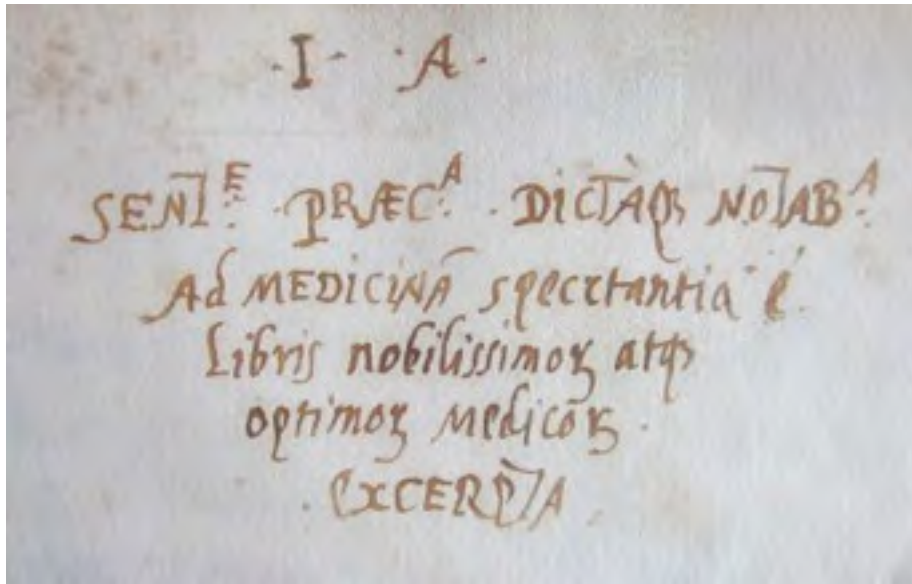 ·I· ·A·
SENT̄ᴱ· PRÆCᴬ· DICTAQꝫ NOTABᴬ·
Ad MEDICINĀ specrtantia è
Libris nobilissimoꝝ atqꝫ
optimoꝝ Medicoꝝ.
EXCERPTA.